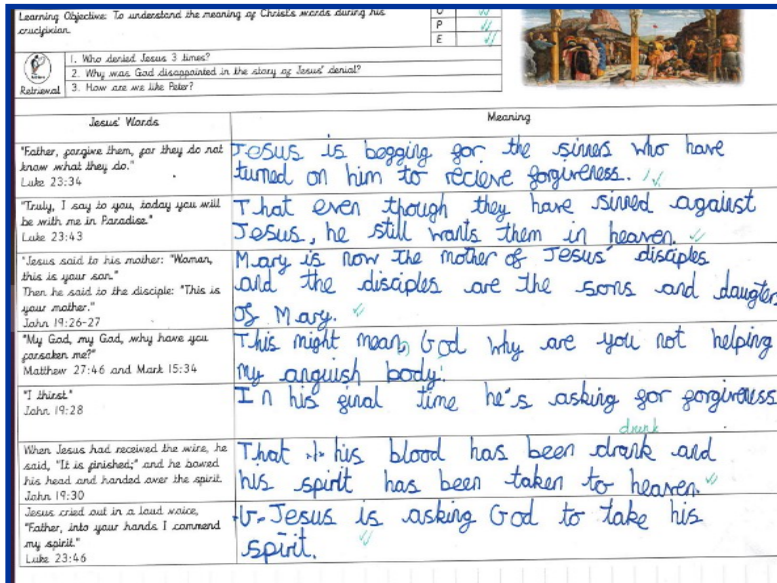 Learning Objective: To understand the meaning of Christ's words during his
crucifixion.
P
E
1. Who denied Jesus 3 times?
2. Why was God disappointed in the story of Jesus' denial?
Retrieval
3. How are we like Peter?
Jesus' Words
Meaning
"Father, forgive them, for they do not
know what they do."
Luke 23:34
Jesus is begging for the sinners who have
turned on him to recieve forgiveness.
"Truly, I say to you, today you will
be with me in Paradise."
Luke 23:43
That even though they have sinned against
Jesus, he still wants them in heaven.
"Jesus said to his mother: "Woman,
this is your son."
Then he said to the disciple: "This is
your mother."
John 19:26-27
Mary is now the mother of Jesus' disciples
and the disciples are the sons and daugters
of Mary.
"My God, my God, why have you
forsaken me?"
Matthew 27:46 and Mark 15:34
This might mean, God why are you not helping
my anguish body.
"I thirst"
John 19:28
In his final time he's asking for forgiveness
When Jesus had received the wine, he
said, "It is finished;" and he bowed
his head and handed over the spirit.
John 19:30
drunk
That his blood has been drank and
his spirit has been taken to heaven.
Jesus cried out in a loud voice,
"Father, into your hands I commend
my spirit."
Luke 23:46
Jesus is asking God to take his
spirit.